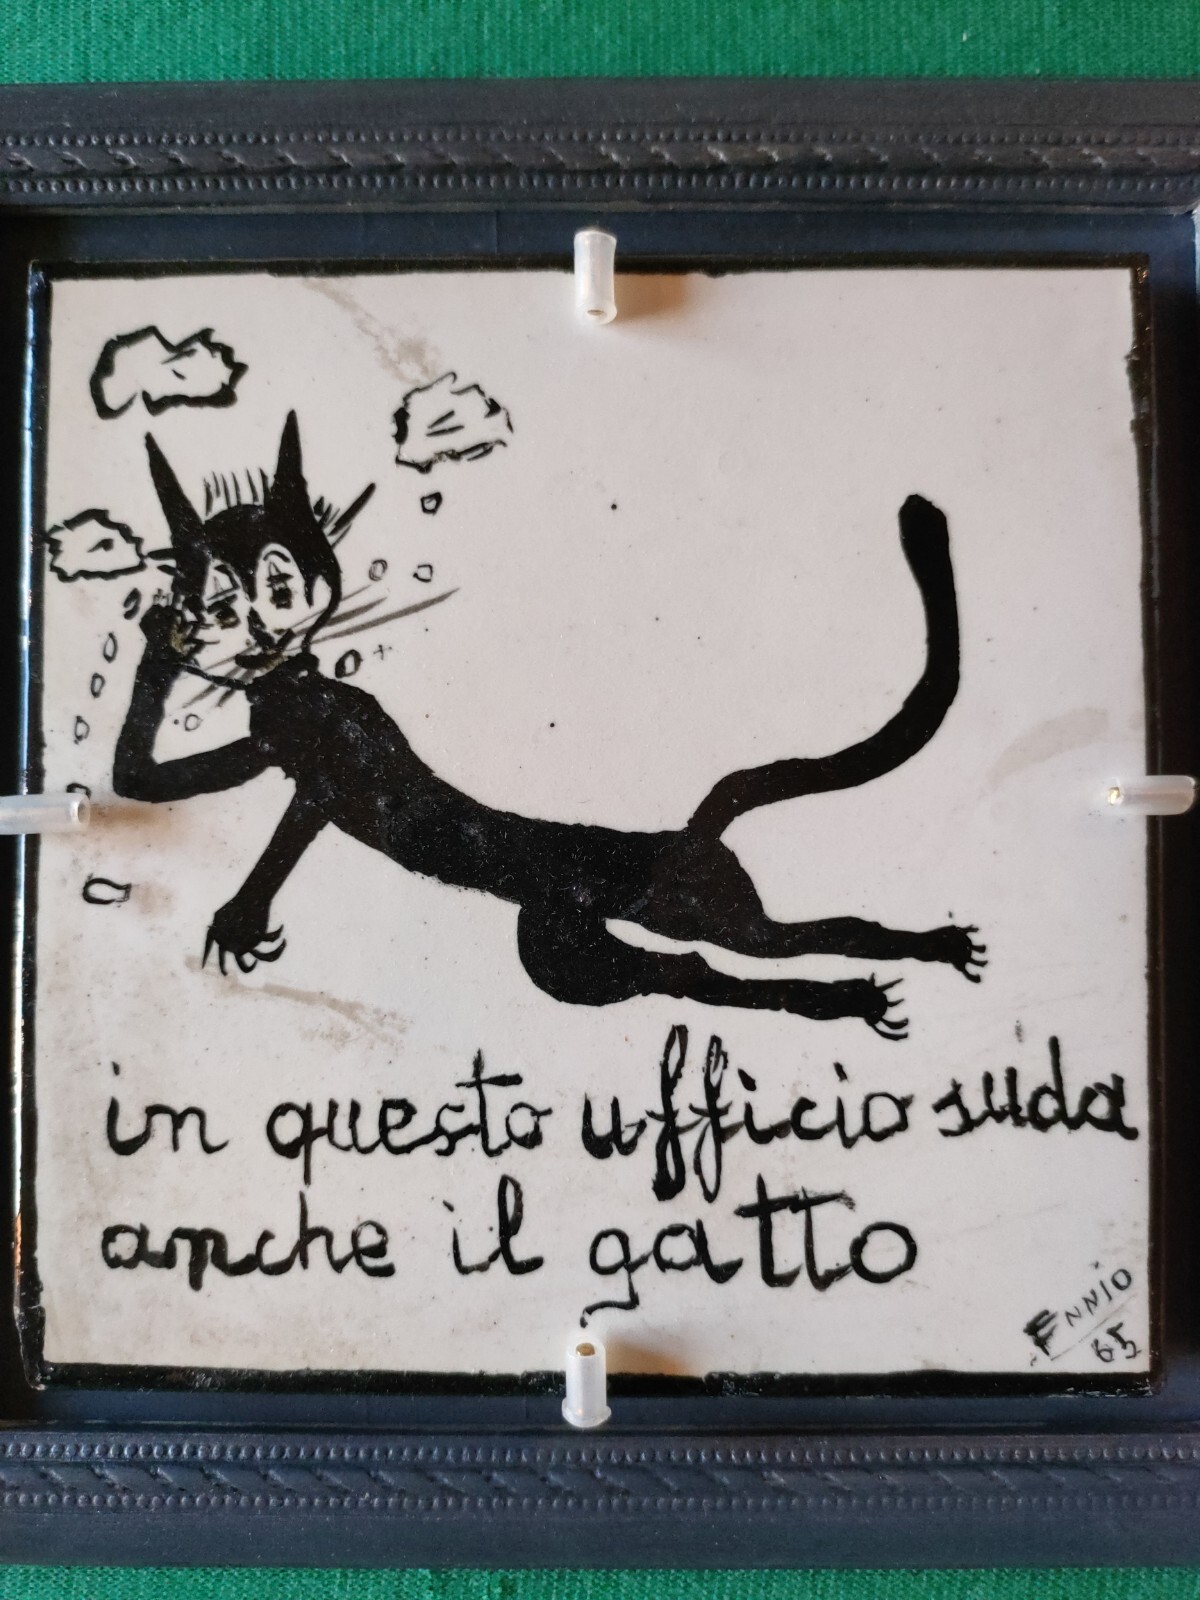 in questo ufficio suda
anche il gatto
ENNIO
65